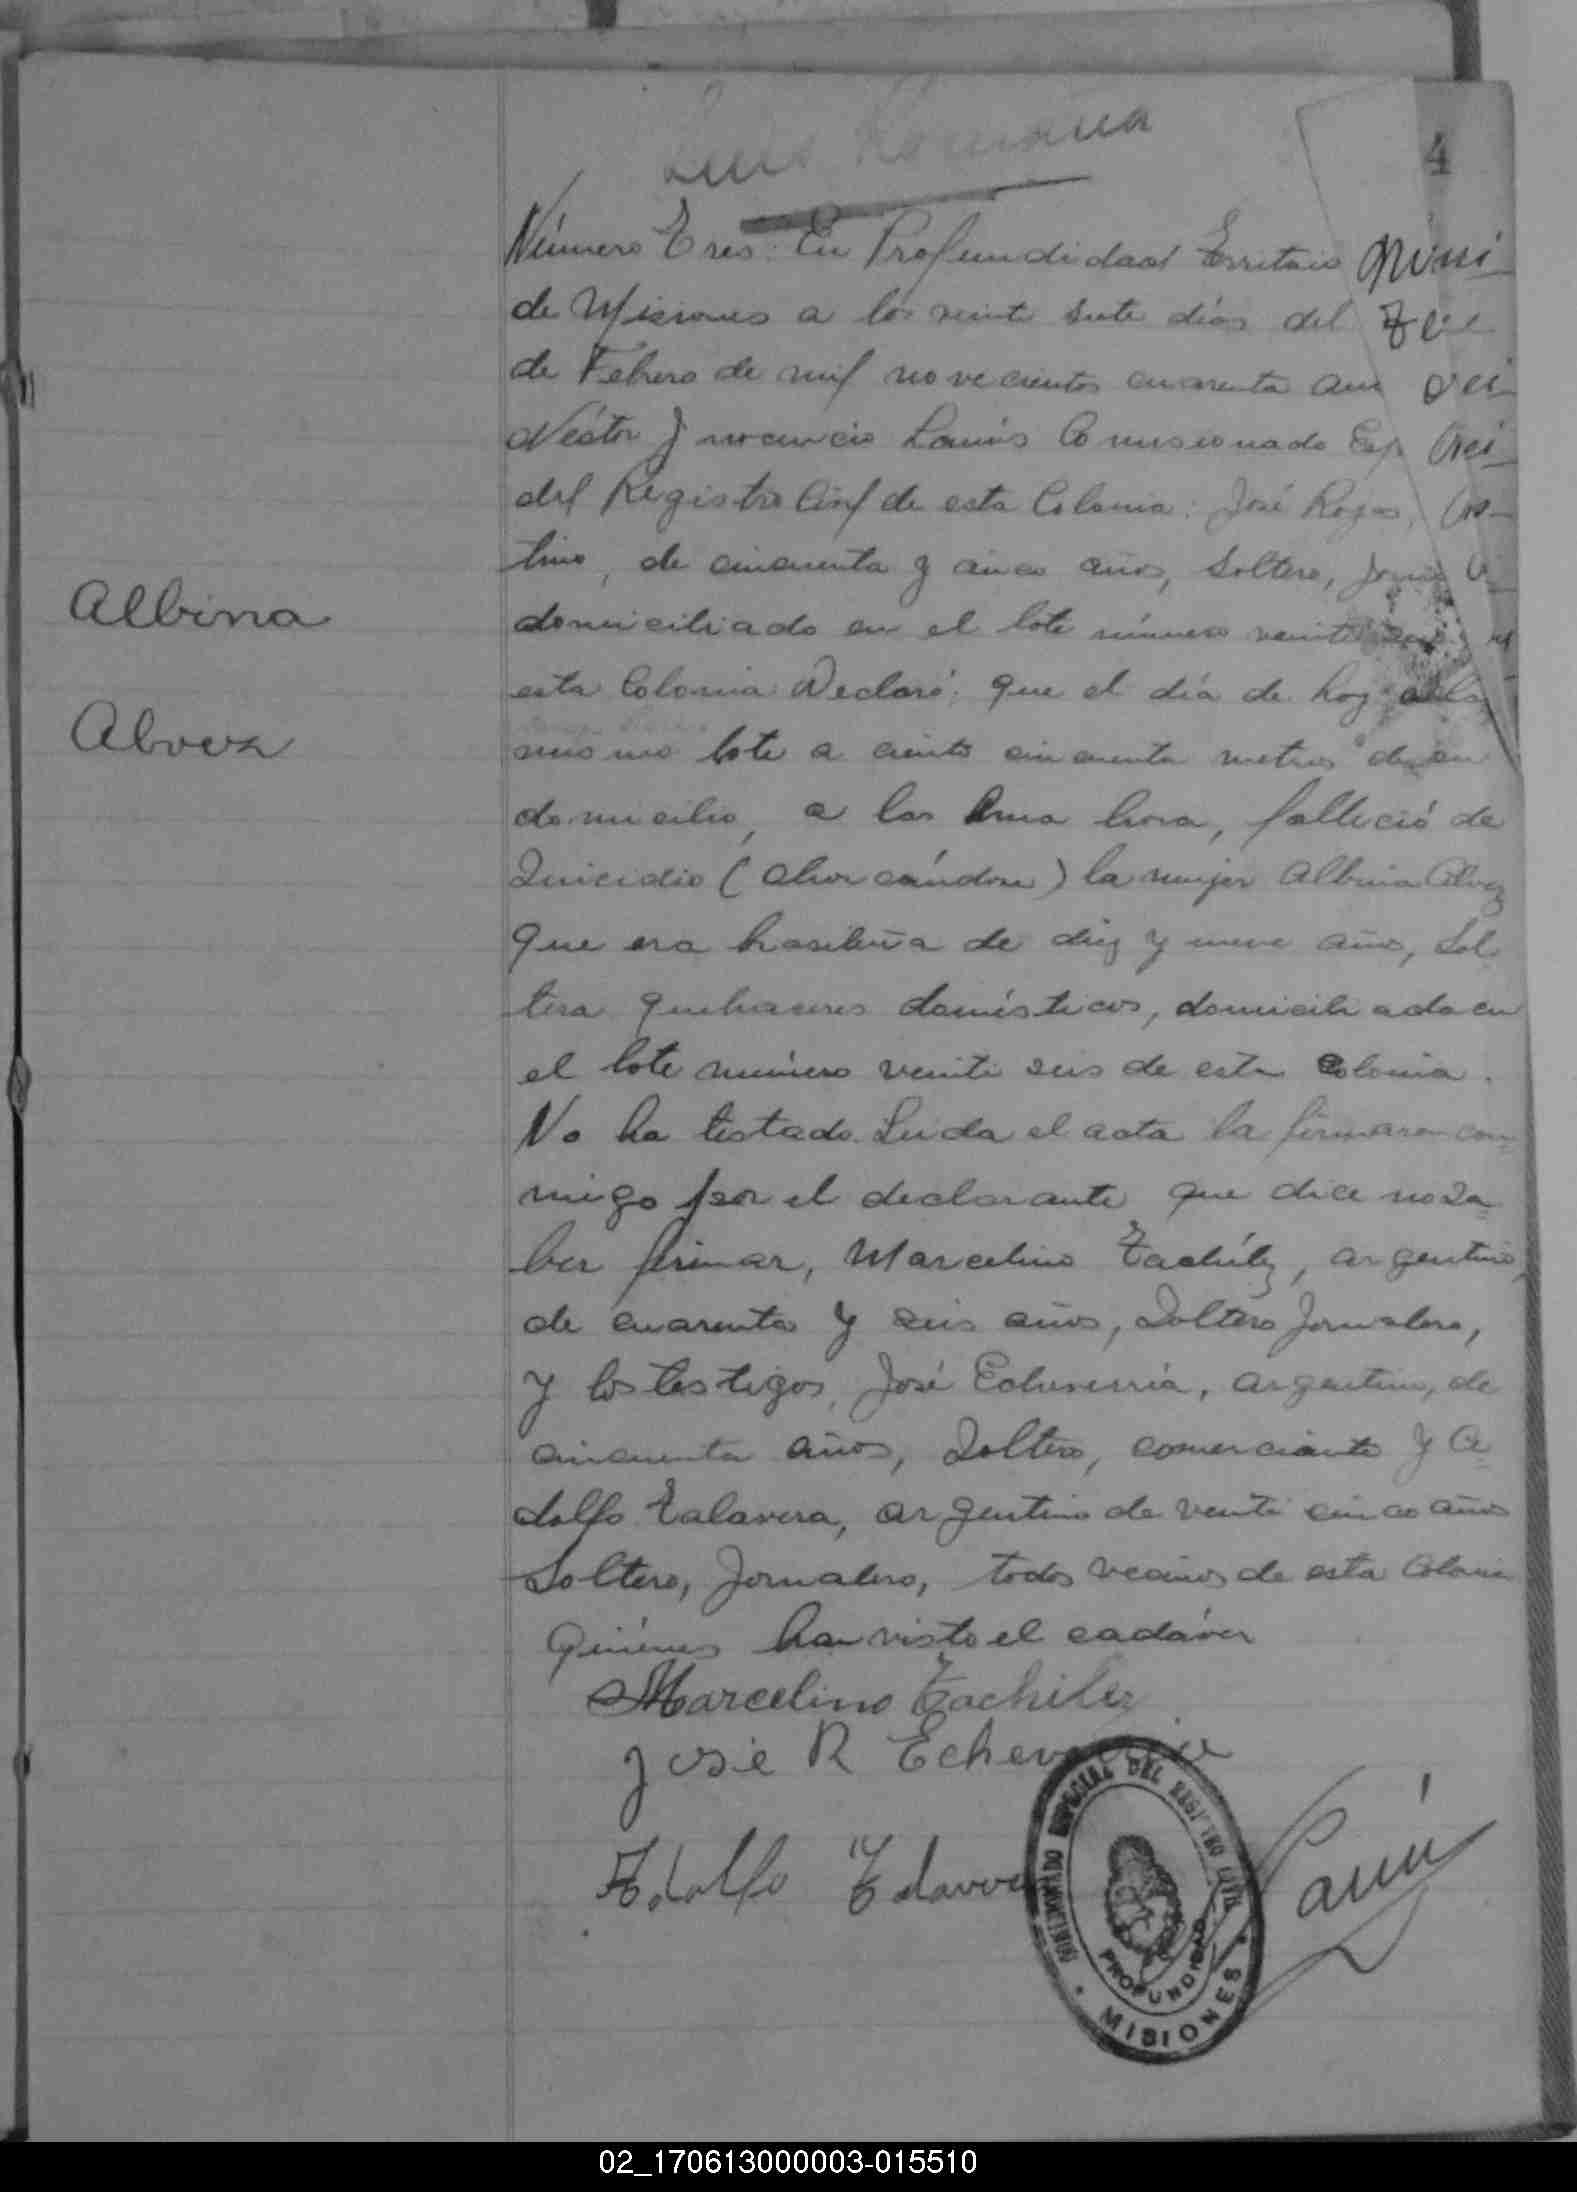 4
Número Tres: En Profundidad Territorio
de Misiones a los veinte siete días del
de Febrero de mil novecientos cuarenta
Néstor Inocencio Lanús Comisionado Esp
del Registro Civil de esta Colonia: José Rojas,
tino, de cincuenta y cinco años, Soltero,
domiciliado en el lote número veinte
esta Colonia Declaró: que el día de hoy
mismo lote a ciento cincuenta metros de su
domicilio, a las Una hora, falleció de
Suicidio (ahorcándose) la mujer Albina Alvez
que era brasileña de diez y nueve años, Sol-
tera quehaceres domésticos, domiciliada en
el lote número veinte seis de esta Colonia.
No ha testado. Leida el acta la firmaron con=
migo por el declarante que dice no sa=
ber firmar, Marcelino Tachílez, argentino,
de cuarenta y seis años, Soltero Jornalero,
y los testigos, José Echeverria, argentino, de
cincuenta años, Soltero, comerciante y A=
dolfo Talavera, argentino de veinte cinco años
Soltero, Jornalero, todos vecinos de esta Colonia
Quiénes han visto el cadáver
Albina
Alvez
Marcelino Tachilez
José R Echeverria
Adolfo
COMISIONADO ESPECIAL DEL REGISTRO CIVIL
PROFUNDIDAD
MISIONES
Lanús
02_170613000003-015510